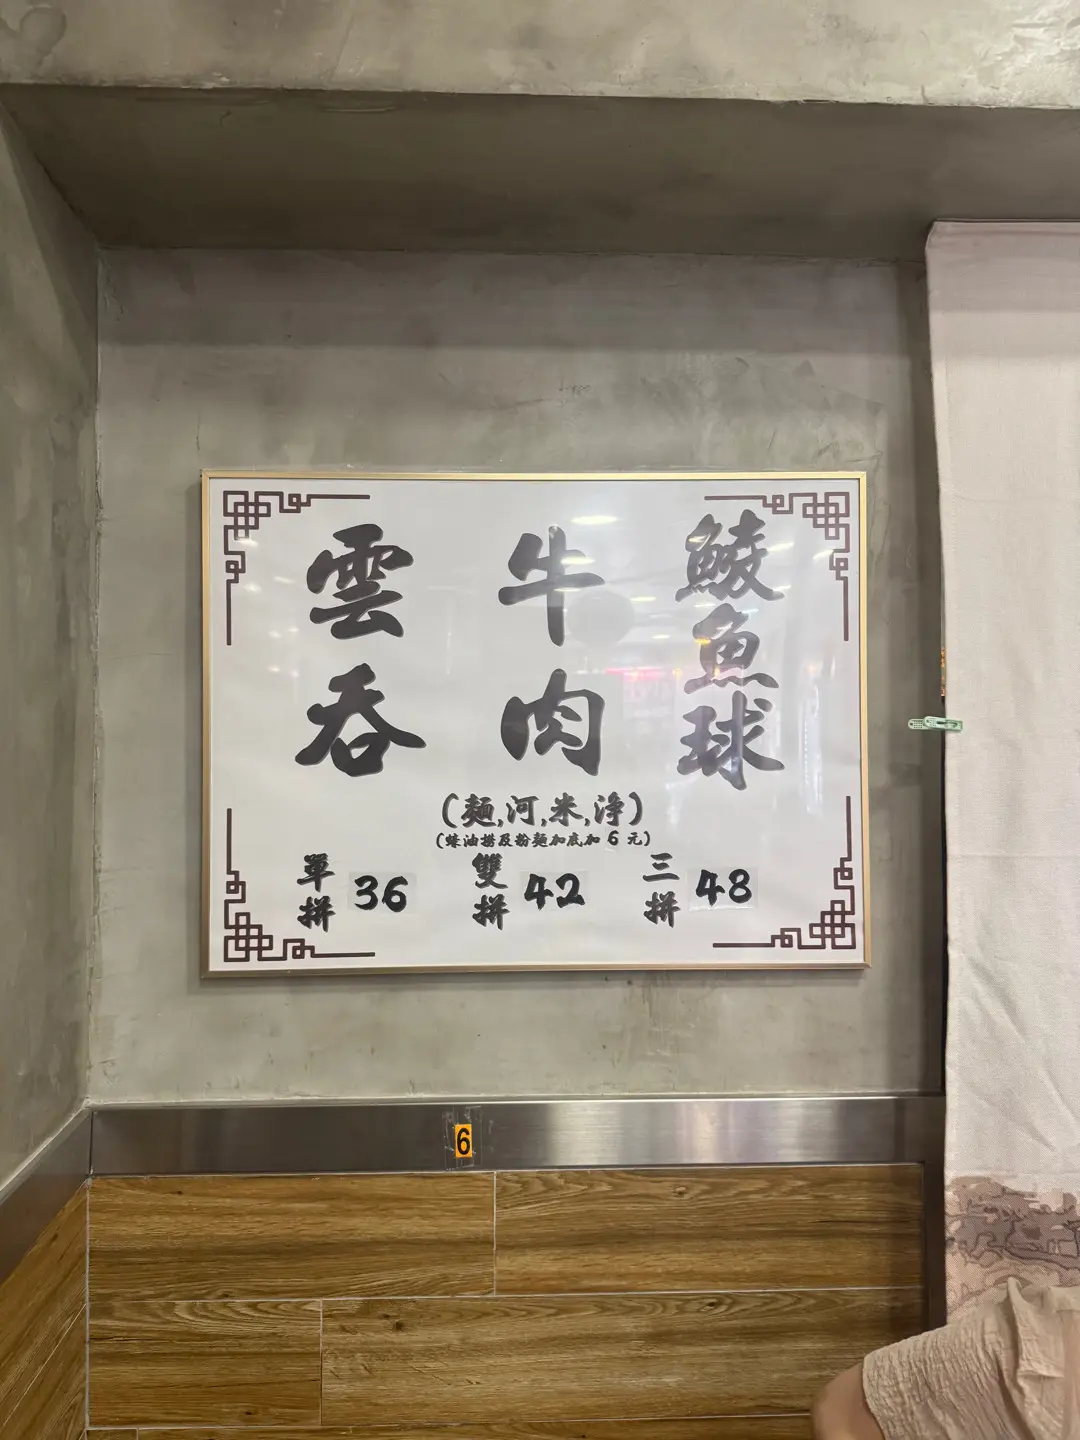 雲吞
牛肉
鯪魚球
(麵,河,米,淨)
(蠔油撈及粉麵加底加 6 元)
單拼 36
雙拼 42
三拼 48
6